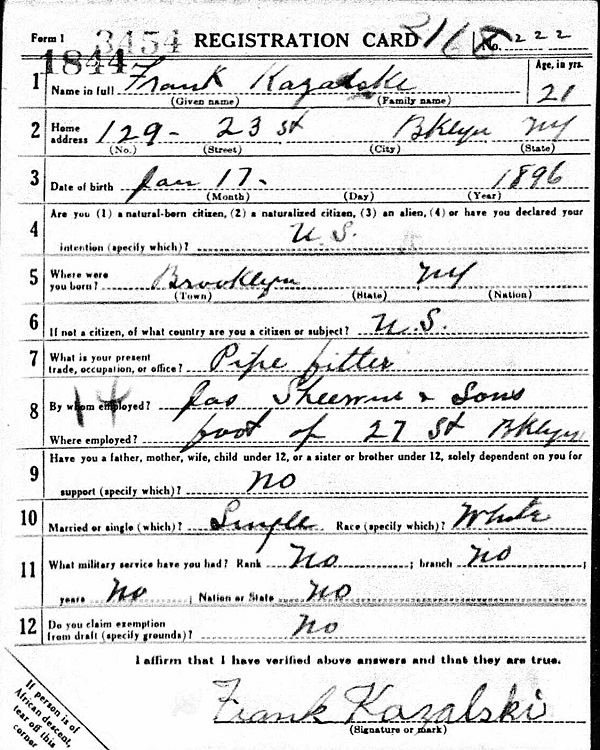 Form 1 3454 REGISTRATION CARD 2168 No. 222
1844
1 Name in full Frank Kazalske Age, in yrs. 21
(Given name) (Family name)
2 Home address 129 - 23 St Bklyn NY
(No.) (Street) (City) (State)
3 Date of birth Jan 17 - 1896
(Month) (Day) (Year)
4 Are you (1) a natural-born citizen, (2) a naturalized citizen, (3) an alien, (4) or have you declared your
intention (specify which)? U.S.
5 Where were you born? Brooklyn NY
(Town) (State) (Nation)
6 If not a citizen, of what country are you a citizen or subject? U.S.
7 What is your present trade, occupation, or office? Pipe fitter
8 By whom employed? Jas & Sons
14
Where employed? foot of 27 St Bklyn
9 Have you a father, mother, wife, child under 12, or a sister or brother under 12, solely dependent on you for
support (specify which)? no
10 Married or single (which)? Single Race (specify which)? White
11 What military service have you had? Rank No ; branch no ;
years No ; Nation or State No
12 Do you claim exemption from draft (specify grounds)? no
I affirm that I have verified above answers and that they are true.
Frank Kazalski
(Signature or mark)
If person is of
African descent,
tear off this
corner